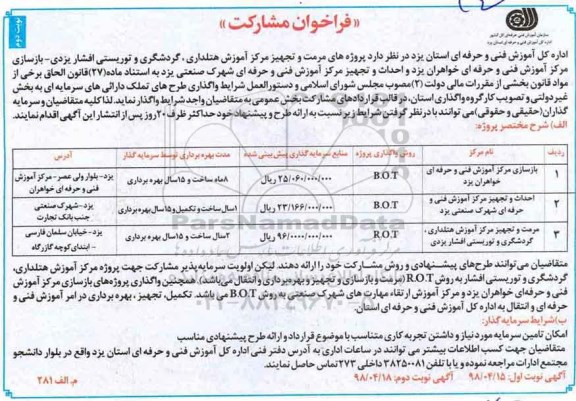 نوبت دوم
«فراخوان مشارکت»
سازمان آموزش فنی و حرفه ای کل کشور
اداره کل آموزش فنی و حرفه ای استان یزد
اداره کل آموزش فنی و حرفه ای استان یزد در نظر دارد پروژه های مرمت و تجهیز مرکز آموزش هتلداری، گردشگری و توریستی افشار یزدی-بازسازی
مرکز آموزش فنی و حرفه ای خواهران یزد و احداث و تجهیز مرکز آموزش فنی و حرفه ای شهرک صنعتی یزد به استناد ماده(۲۷)قانون الحاق برخی از
مواد قانون بخشی از مقررات مالی دولت (۲)مصوب مجلس شورای اسلامی و دستورالعمل شرایط واگذاری طرح های تملک دارائی های سرمایه ای به بخش
غیردولتی و تصویب کارگروه واگذاری استان، در قالب قراردادهای مشارکت بخش عمومی به متقاضیان واجد شرایط واگذار نماید. لذا کلیه متقاضیان و سرمایه
گذاران(حقیقی و حقوقی)می توانند با در نظر گرفتن شرایط زیر نسبت به ارائه طرح و پیشنهاد خود حداکثر ظرف ۲۰ روز پس از انتشار این آگهی اقدام نمایند.
الف) شرح مختصر پروژه:
ردیف نام مرکز روش واگذاری پروژه منابع سرمایه گذاری پیش بینی شده مدت بهره برداری توسط سرمایه گذار آدرس
۱ بازسازی مرکز آموزش فنی و حرفه ای خواهران یزد B.O.T ۲۵/۰۶۰/۰۰۰/۰۰۰ ریال ۸ماه ساخت و ۱۵سال بهره برداری یزد-بلوار ولی عصر- مرکز آموزش فنی و حرفه ای خواهران
۲ احداث و تجهیز مرکز آموزش فنی و حرفه ای شهرک صنعتی یزد B.O.T ۲۳/۱۶۶/۰۰۰/۰۰۰ ریال ۱سال ساخت و تکمیل و۱۵سال بهره برداری یزد-شهرک صنعتی جنب بانک تجارت
۳ مرمت و تجهیز مرکز آموزش هتلداری، گردشگری و توریستی افشار یزدی R.O.T ۹۶/۰۰۰۰/۰۰۰/۰۰۰ ریال ۲سال ساخت و ۱۵سال بهره برداری یزد- خیابان سلمان فارسی - ابتدای کوچه گازرگاه
متقاضیان می توانند طرح های پیشنهادی و روش مشارکت خود را ارائه دهند. لیکن اولویت سرمایه پذیر مشارکت جهت پروژه مرکز آموزش هتلداری،
گردشگری و توریستی افشار به روش R.O.T(مرمت و بازسازی و تجهیز و بهره برداری و انتقال می باشد). همچنین واگذاری پروژه های بازسازی مرکز آموزش
فنی و حرفه ای خواهران یزد و مرکز آموزش ارتقاء مهارت های شهرک صنعتی به روش B.O.T می باشد. تکمیل، تجهیز، بهره برداری در امر آموزش فنی و
حرفه ای و انتقال به اداره کل آموزش فنی و حرفه ای استان.
ب)شرایط سرمایه گذار:
امکان تامین سرمایه مورد نیاز و داشتن تجربه کاری متناسب با موضوع قرارداد و ارائه طرح پیشنهادی مناسب
متقاضیان جهت کسب اطلاعات بیشتر می توانند در ساعات اداری به آدرس دفتر فنی اداره کل آموزش فنی و حرفه ای استان یزد واقع در بلوار دانشجو
مجتمع ادارات مراجعه نموده و یا با تلفن ۳۸۲۵۰۰۸۱ داخلی ۲۷۳ تماس حاصل نمایند.
آگهی نوبت اول: ۹۸/۰۴/۱۵ آگهی نوبت دوم: ۹۸/۰۴/۱۸
م. الف ۲۸۱
ParsNamadData
۰۲۱-۸۸۳۴۹۶۷۰